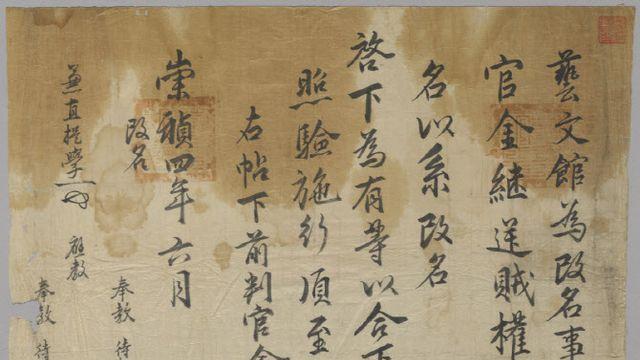 藝文館為改名事
官金継𨓏賊權
名以系改名
啓下為有等以合下
照驗施行須至
右帖下前判官金
崇禎四年六月
改名
兼直提學
應教
奉教 待
奉教 待